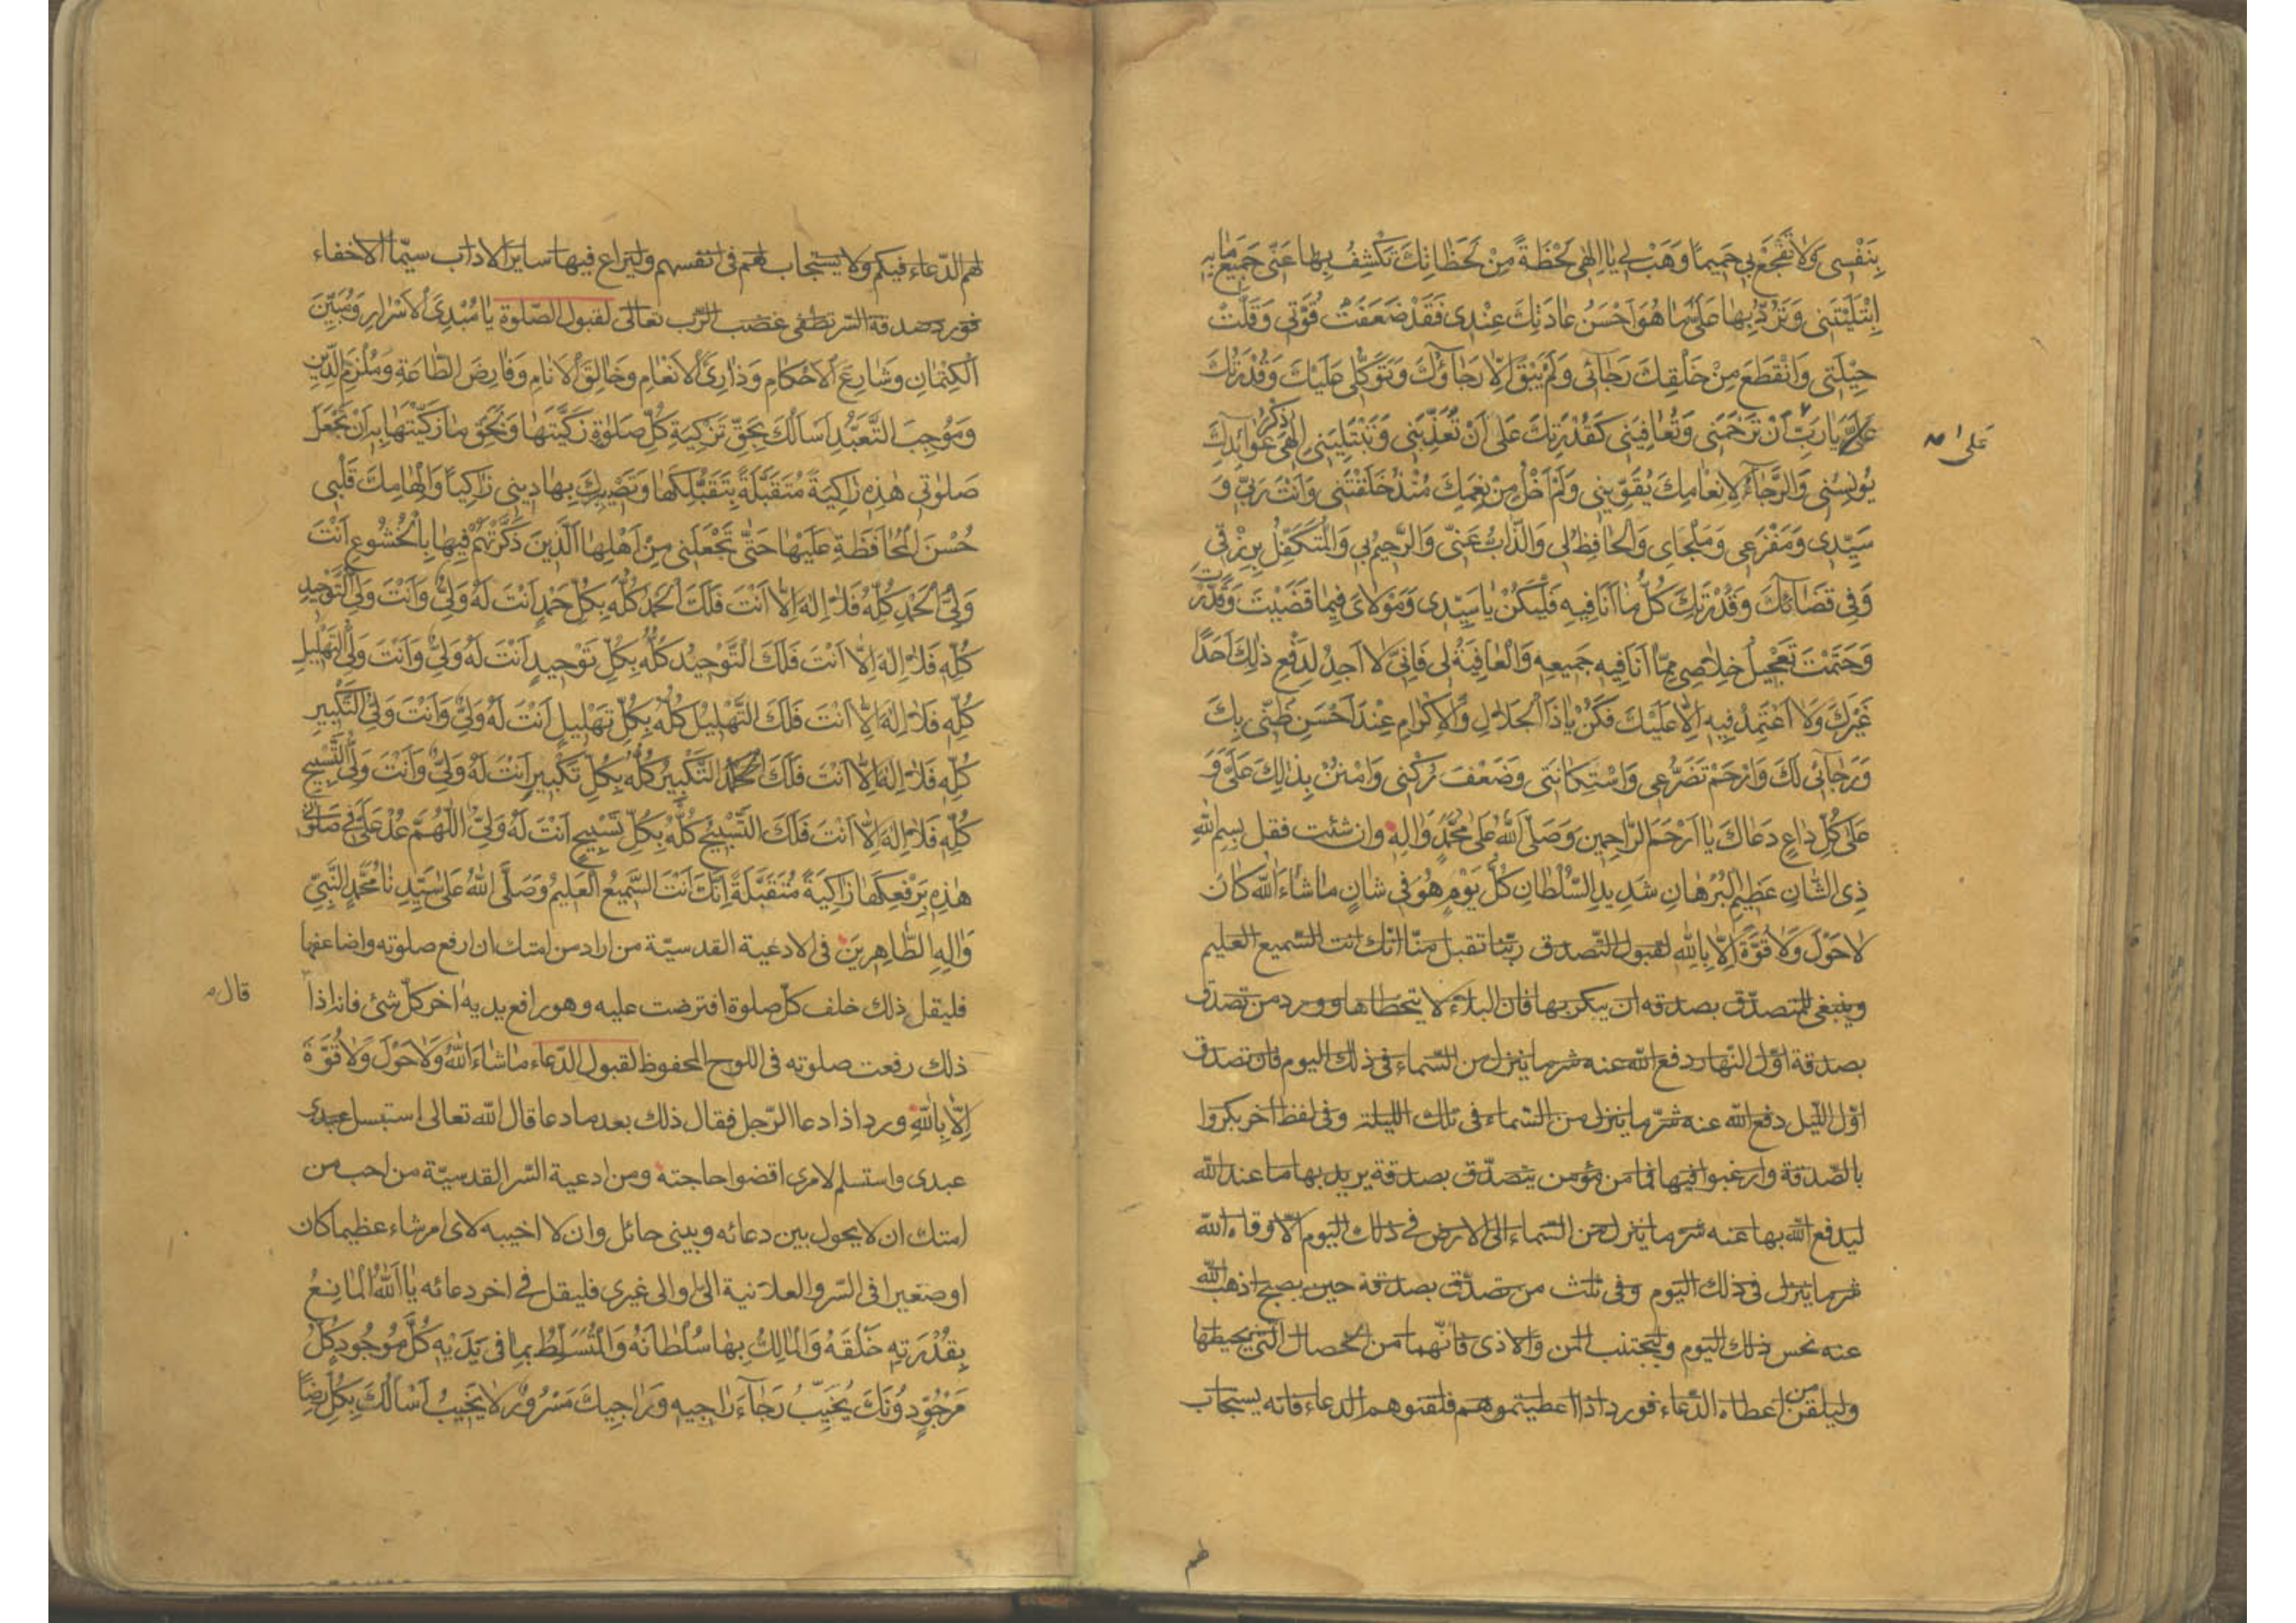 بِنَفْسِى وَلَا تُفْجِعْ بِي حَمِيمًا وَهَبْ لِي يَا اِلٰهِى لَحْظَةً مِنْ لَحَظَاتِكَ تَكْشِفُ بِهَا عَنّى جَمِيعَ مَا بِهِ
اِبْتَلَيْتَنِى وَتَرُدُّ بِهَا عَلَىَّ مَا هُوَ اَحْسَنُ عَادَتِكَ عِنْدِى فَقَدْ ضَعُفَتْ قُوَّتِى وَقَلَّتْ
حِيْلَتِى وَانْقَطَعَ مِنْ خَلْقِكَ رَجَائِى وَلَمْ يَبْقَ اِلَّا رَجَاؤُكَ وَتَوَكُّلِى عَلَيْكَ وَقُدْرَتُكَ
عَلَىَّ يَا رَبِّ اَنْ تَرْحَمَنِى وَتُعَافِيَنِى كَقُدْرَتِكَ عَلَى اَنْ تُعَذِّبَنِى وَتَبْتَلِيَنِى اِلٰهِى ذِكْرُ عَوَائِدِكَ
على
يُونِسُنِى وَالرَّجَاءُ لِاِنْعَامِكَ يُقَوِّيْنِى وَلَمْ اَخْلُ مِنْ نِعَمِكَ مُنْذُ خَلَقْتَنِى وَاَنْتَ رَبِّى وَ
سَيِّدِى وَمَفْزَعِى وَمَلْجَاىِ وَالْحَافِظُ لِى وَالذَّابُّ عَنِّى وَالرَّحِيمُ بِى وَالْمُتَكَفِّلُ بِرِزْقِى
وَفِى قَضَائِكَ وَقُدْرَتِكَ كُلُّ مَا اَنَا فِيهِ فَلْيَكُنْ يَا سَيِّدِى وَمَوْلَاىَ فِيمَا قَضَيْتَ وَقَدَّرْتَ
وَحَتَمْتَ تَعْجِيلُ خَلَاصِى مِمَّا اَنَا فِيهِ جَمِيعِهِ وَالْعَافِيَةُ لِى فَاِنِّى لَا اَجِدُ لِدَفْعِ ذٰلِكَ اَحَدًا
غَيْرَكَ وَلَا اَعْتَمِدُ فِيهِ اِلَّا عَلَيْكَ فَكُنْ يَا ذَا الْجَلَالِ وَالْاِكْرَامِ عِنْدَ اَحْسَنِ ظَنِّى بِكَ
وَرَجَائِى لَكَ وَارْحَمْ تَضَرُّعِى وَاسْتِكَانَتِى وَضَعْفَ رُكْنِى وَامْنُنْ بِذٰلِكَ عَلَىَّ وَ
عَلَى كُلِّ دَاعٍ دَعَاكَ يَا اَرْحَمَ الرَّاحِمِينَ وَصَلَّى اللّٰهُ عَلَى مُحَمَّدٍ وَاٰلِهِ وان شئت فقل بِسْمِ اللّٰهِ
ذِى الشَّانِ عَظِيمِ الْبُرْهَانِ شَدِيدِ السُّلْطَانِ كُلَّ يَوْمٍ هُوَ فِى شَانٍ مَا شَاءَ اللّٰهُ كَانَ
لَا حَوْلَ وَلَا قُوَّةَ اِلَّا بِاللّٰهِ لقبول التّصدق ربّنا تقبل منّا انّك انت السّميع العليم
وينبغى للمتصدّق بصدقه ان يبكر بها فان البلاء لا يتخطاها وورد من تصدق
بصدقة اوّل النّهار دفع اللّه عنه شر ما ينزل من السّماء فى ذلك اليوم فان تصدق
اوّل الليل دفع اللّه عنه شرّ ما ينزل من السّماء فى تلك الليلة وفى لفظ اخر بكروا
بالصّدقة وارغبوا فيها فما من مؤمن يتصدّق بصدقة يريد بها ما عند اللّه
ليدفع اللّه بها عنه شر ما ينزل من السّماء الى الارض فى ذلك اليوم الّا وقاه اللّه
شر ما ينزل فى ذلك اليوم وفى ثلث من تصدّق بصدقة حين يصبح اذهب اللّه
عنه نحس ذلك اليوم وليجتنب المن والاذى فانّهما من الخصال التى يحيطها
وليلقن من اعطاه الدّعاء فورد اذا اعطيتموهم فلقنوهم الدعاء فانه يستجاب
لهم الدّعاء فيكم ولا يستجاب لهم فى انفسهم وليراع فيها ساير الاداب سيّما الاخفاء
فورد صدقة السّر تطفى غضب الرّب تعالى لقبول الصّلوة يَا مُبْدِىَ الْاَسْرَارِ وَمُبَيِّنَ
الْكِتْمَانِ وَشَارِعَ الْاَحْكَامِ وَذَارِئَ الْاَنْعَامِ وَخَالِقَ الْاَنَامِ وَفَارِضَ الطَّاعَةِ وَمُلْزِمَ الدِّينِ
وَمُوجِبَ التَّعَبُّدِ اَسْاَلُكَ بِحَقِّ تَزْكِيَةِ كُلِّ صَلٰوةٍ زَكَّيْتَهَا وَبِحَقِّ مَا زَكَّيْتَهَا بِهِ اَنْ تَجْعَلَ
صَلٰوتِى هٰذِهِ زَاكِيَةً مُتَقَبَّلَةً بِتَقَبُّلِكَهَا وَتَصْيِيرِكَ بِهَا دِينِى زَاكِياً وَاِلْهَامِكَ قَلْبِى
حُسْنَ الْمُحَافَظَةِ عَلَيْهَا حَتّٰى تَجْعَلَنِى مِنْ اَهْلِهَا الَّذِينَ ذَكَرْتَهُمْ فِيهَا بِالْخُشُوعِ اَنْتَ
وَلِىُّ الْحَمْدِ كُلِّهِ فَلَا اِلٰهَ اِلَّا اَنْتَ فَلَكَ الْحَمْدُ كُلُّهُ بِكُلِّ حَمْدٍ اَنْتَ لَهُ وَلِىٌّ وَاَنْتَ وَلِىُّ التَّوْحِيدِ
كُلِّهِ فَلَا اِلٰهَ اِلَّا اَنْتَ فَلَكَ التَّوْحِيْدُ كُلُّهُ بِكُلِّ تَوْحِيدٍ اَنْتَ لَهُ وَلِىٌّ وَاَنْتَ وَلِىُّ التَّهْلِيلِ
كُلِّهِ فَلَا اِلٰهَ اِلَّا اَنْتَ فَلَكَ التَّهْلِيْلُ كُلُّهُ بِكُلِّ تَهْلِيلٍ اَنْتَ لَهُ وَلِىٌّ وَاَنْتَ وَلِىُّ التَّكْبِيرِ
كُلِّهِ فَلَا اِلٰهَ اِلَّا اَنْتَ فَلَكَ التَّكْبِيْرُ كُلُّهُ بِكُلِّ تَكْبِيرٍ اَنْتَ لَهُ وَلِىٌّ وَاَنْتَ وَلِىُّ التَّسْبِيحِ
كُلِّهِ فَلَا اِلٰهَ اِلَّا اَنْتَ فَلَكَ التَّسْبِيْحُ كُلُّهُ بِكُلِّ تَسْبِيحٍ اَنْتَ لَهُ وَلِىٌّ اَللّٰهُمَّ عُدْ عَلَىَّ فِى صَلٰوتِى
هٰذِهِ بِرَفْعِكَهَا زَاكِيَةً مُتَقَبَّلَةً اِنَّكَ اَنْتَ السَّمِيعُ الْعَلِيمُ وَصَلَّى اللّٰهُ عَلَى سَيِّدِنَا مُحَمَّدٍ النَّبِىِّ
وَاٰلِهِ الطَّاهِرِينَ فى الادعية القدسيّة من اراد من امتك ان ارفع صلوته واضاعفها
فليقل ذلك خلف كلّ صلوة افترضت عليه وهو رافع يديه اخر كلّ شئ فانه اذا
قال
ذلك رفعت صلوته فى اللوح المحفوظ لقبول الدّعاء مَا شَاءَ اللّٰهُ وَلَا حَوْلَ وَلَا قُوَّةَ
اِلَّا بِاللّٰهِ ورد اذا دعا الرّجل فقال ذلك بعد ما دعا قال اللّه تعالى استبسل عبدى
عبدى واستسلم لامرى اقضوا حاجته ومن ادعية السّر القدسيّة من احب من
امتك ان لا يحول بين دعائه وبينى حائل وان لا اخيبه لاى امر شاء عظيما كان
او صغيرا فى السّر والعلانية الىّ او الى غيرى فليقل فى اخر دعائه يَا اَللّٰهُ الْمَانِعُ
بِقُدْرَتِهِ خَلْقَهُ وَالْمَالِكُ بِهَا سُلْطَانَهُ وَالْمُتَسَلِّطُ بِمَا فِى يَدَيْهِ كُلَّ مَوْجُودٍ كُلُّ
مَرْجُوٍّ دُونَكَ يُخَيِّبُ رَجَاءَ رَاجِيهِ وَرَاجِيكَ مَسْرُورٌ لَا يَخِيبُ اَسْاَلُكَ بِكُلِّ رِضًا